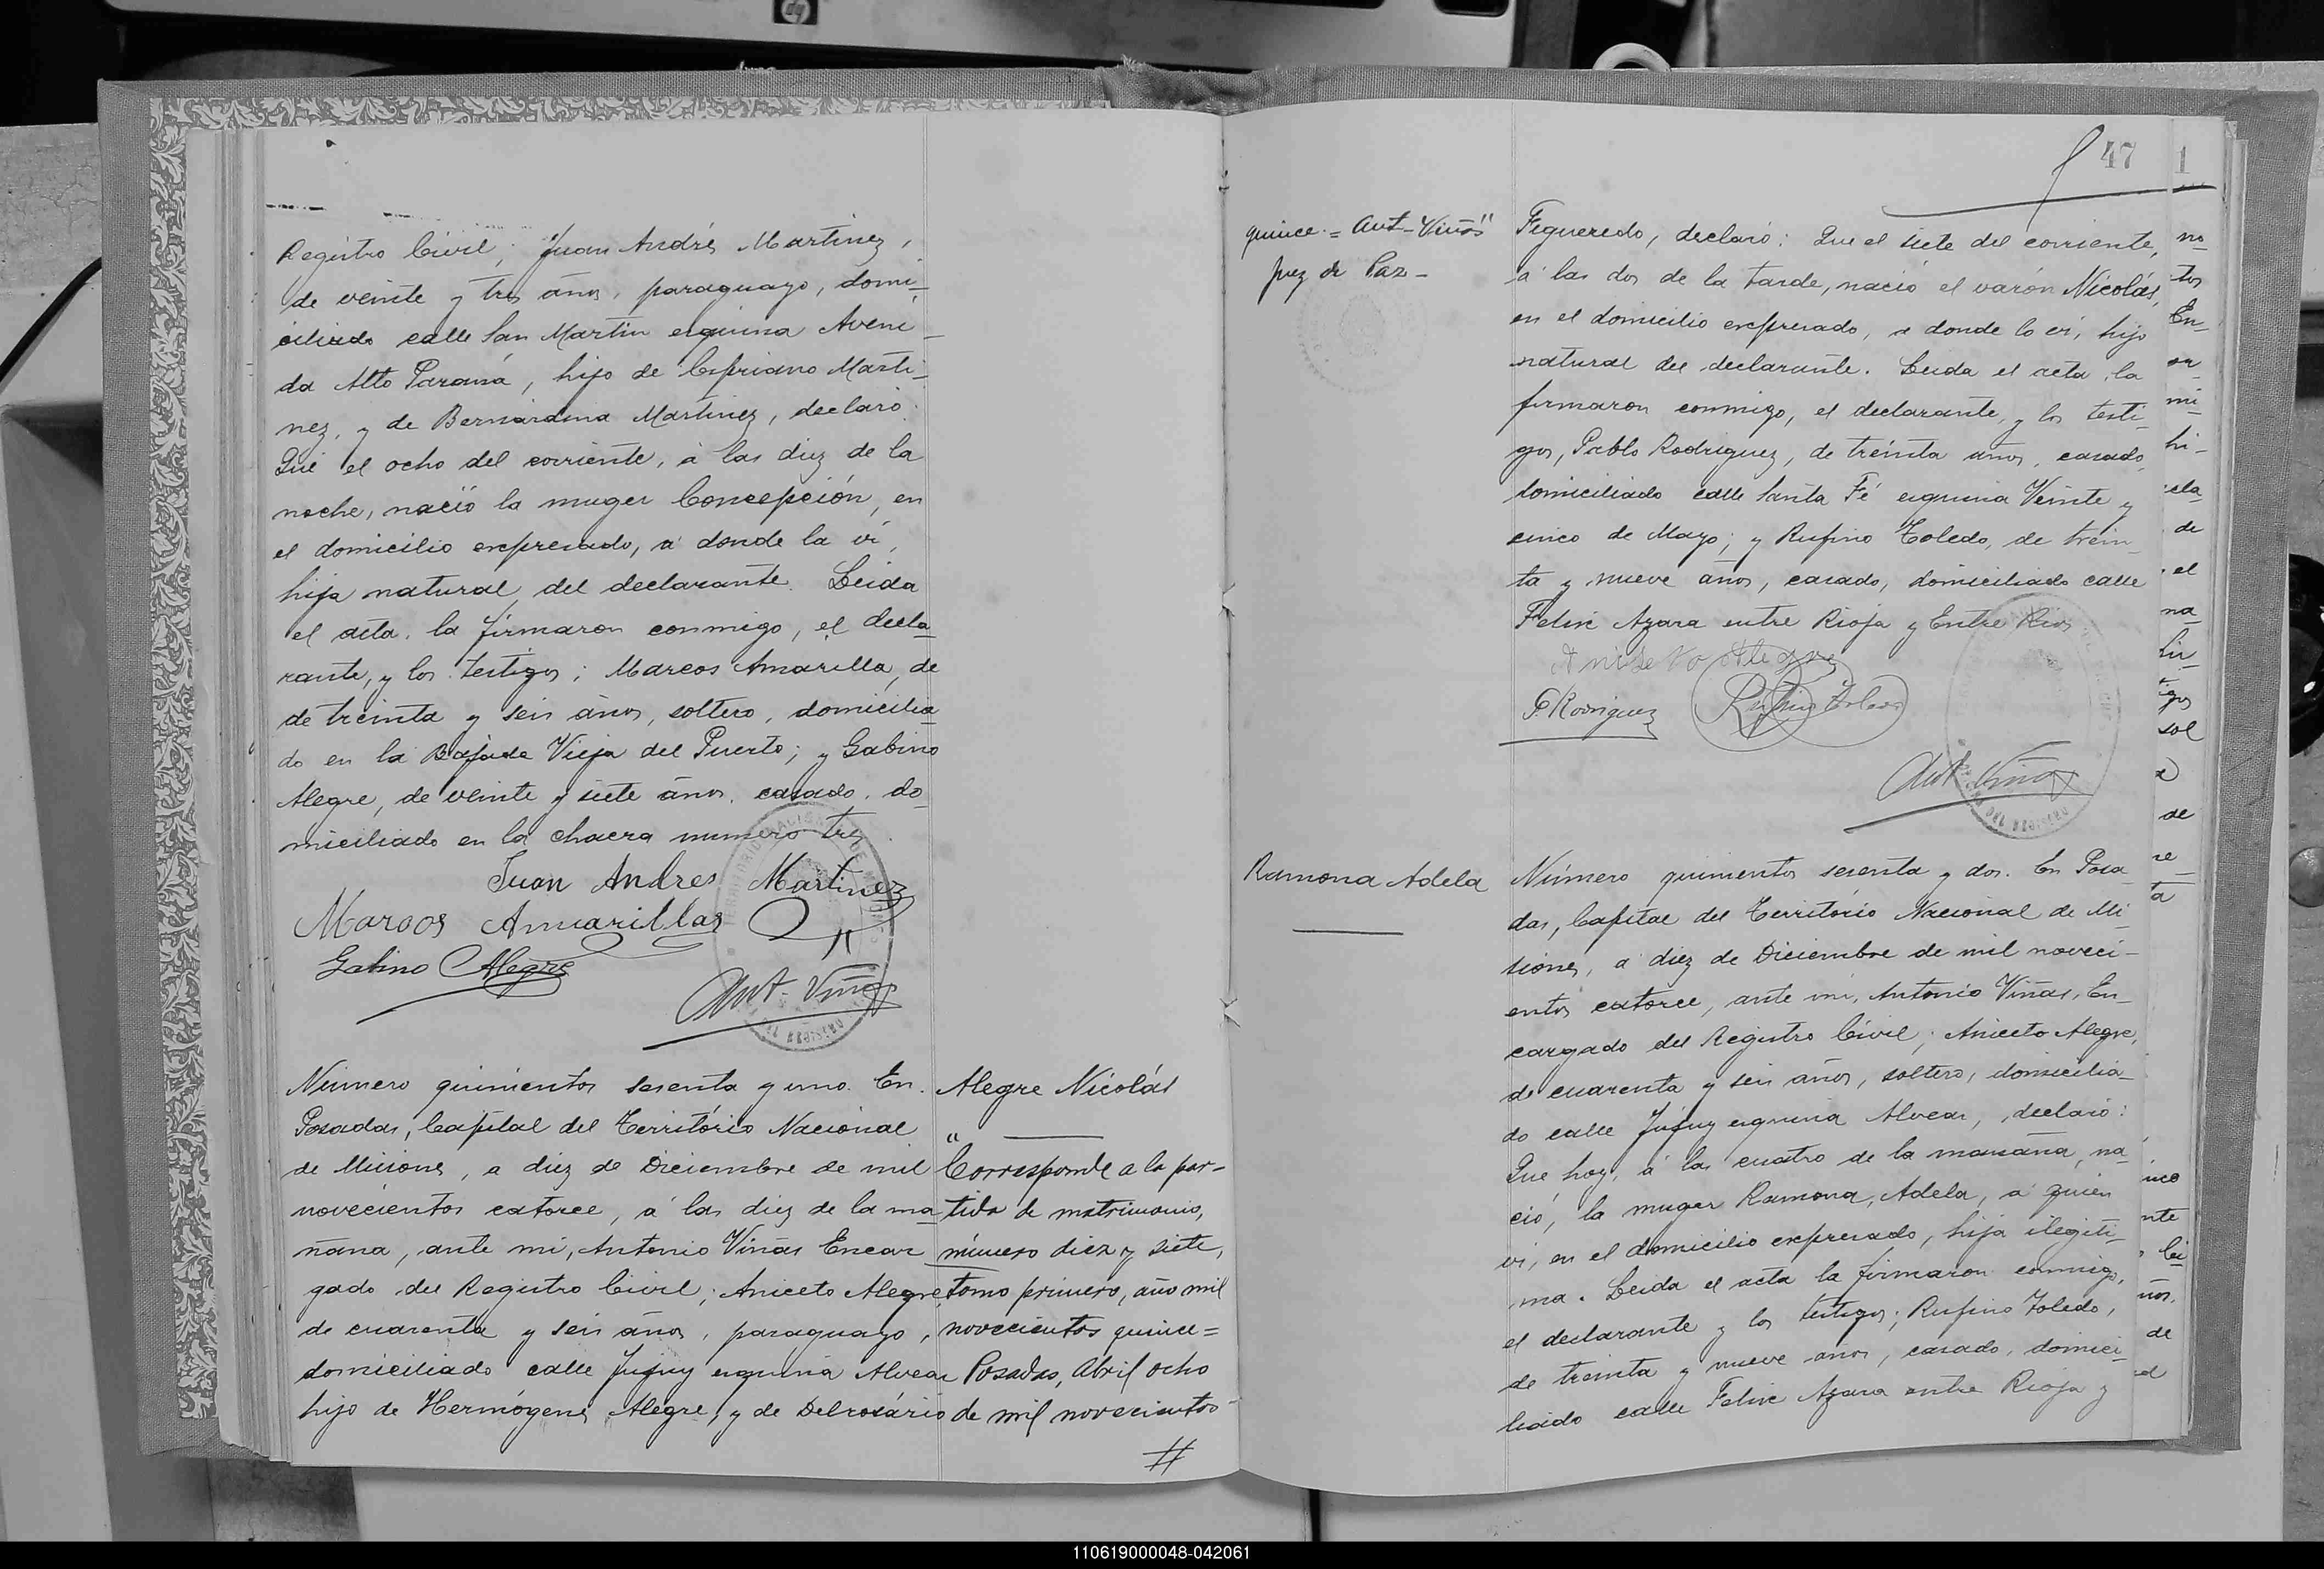 Registro Civil; Juan Andrés Martinez,
de veinte y tres años, paraguayo, domi-
ciliado calle San Martin esquina Aveni-
da Alto Paraná, hijo de Cipriano Marti-
nez, y de Bernardina Martinez, declaró:
Que el ocho del corriente, á las diez de la
noche, nació la muger Concepción, en
el domicilio expresado, á donde la ví,
hija natural del declarante. Leida
el acta, la firmaron conmigo, el decla-
rante, y los testigos; Marcos Amarilla, de
de treinta y seis años, soltero, domicilia-
do en la Bajada Vieja del Puerto; y Gabino
Alegre, de veinte y siete años, casado, do-
miciliado en la chacra numero tres.
Juan Andres Martinez
Marcos Amarillas
Gabino Alegre
Ant. Viñas
Número quinientos sesenta y uno. En
Posadas, Capital del Território Nacional
de Misiones, a diez de Diciembre de mil
novecientos catorce, á las diez de la ma-
ñana, ante mi, Antonio Viñas Encar
gado del Registro Civil; Aniceto Alegre,
de cuarenta y seis años, paraguayo,
domiciliado calle Jujuy esquina Alvear
hijo de Hermógenes Alegre, y de Delrosário
Alegre Nicolás
"Corresponde a la par-
tida de matrimonio,
número diez y siete,
tomo primero, año mil
novecientos quince=
Posadas, Abril ocho
de mil novecientos-
#
47
1
quince.= Ant-Viñas"
Juez de Paz-
Figueredo, declaró: Que el siete del corriente,
á las dos de la tarde, nació el varón Nicolás,
en el domicilio expresado, a donde lo ví, hijo
natural del declarante. Leida el acta, la
firmaron conmigo, el declarante, y los testi-
gos, Pablo Rodriguez, de treinta años, casado,
domiciliado calle Santa Fé esquina Veinte y
cinco de Mayo; y Rufino Toledo, de trein-
ta y nueve años, casado, domiciliado calle
Felix Azara entre Rioja y Entre Rios
Aniseto Alegre
P. Rodriguez Rufino Toledo
Ant. Viñas
DEL REGISTRO
Ramona Adela
Número quinientos sesenta y dos. En Posa-
das, Capital del Território Nacional de Mi-
siones, a diez de Diciembre de mil noveci-
entos catorce, ante mi, Antonio Viñas, En-
cargado del Registro Civil; Aniceto Alegre,
de cuarenta y seis años, soltero, domicilia-
do calle Jujuy esquina Alvear, declaró:
Que hoy, á las cuatro de la mañana, na-
ció, la muger Ramona, Adela, a quien
ví, en el domicilio expresado, hija ilegiti-
ma. Leida el acta la firmaron conmigo,
el declarante y los testigos; Rufino Toledo,
de treinta y nueve años, casado, domici-
liado calle Felix Azara entre Rioja y
no-
tos
En-
mi-
hi-
de
el
na-
sol
de
ta
nte
de
110619000048-042061